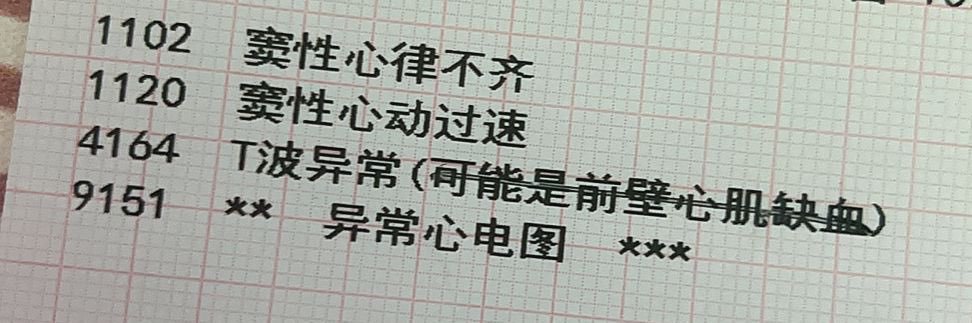 1102 窦性心律不齐
1120 窦性心动过速
4164 T波异常(可能是前壁心肌缺血)
9151 ** 异常心电图 ***